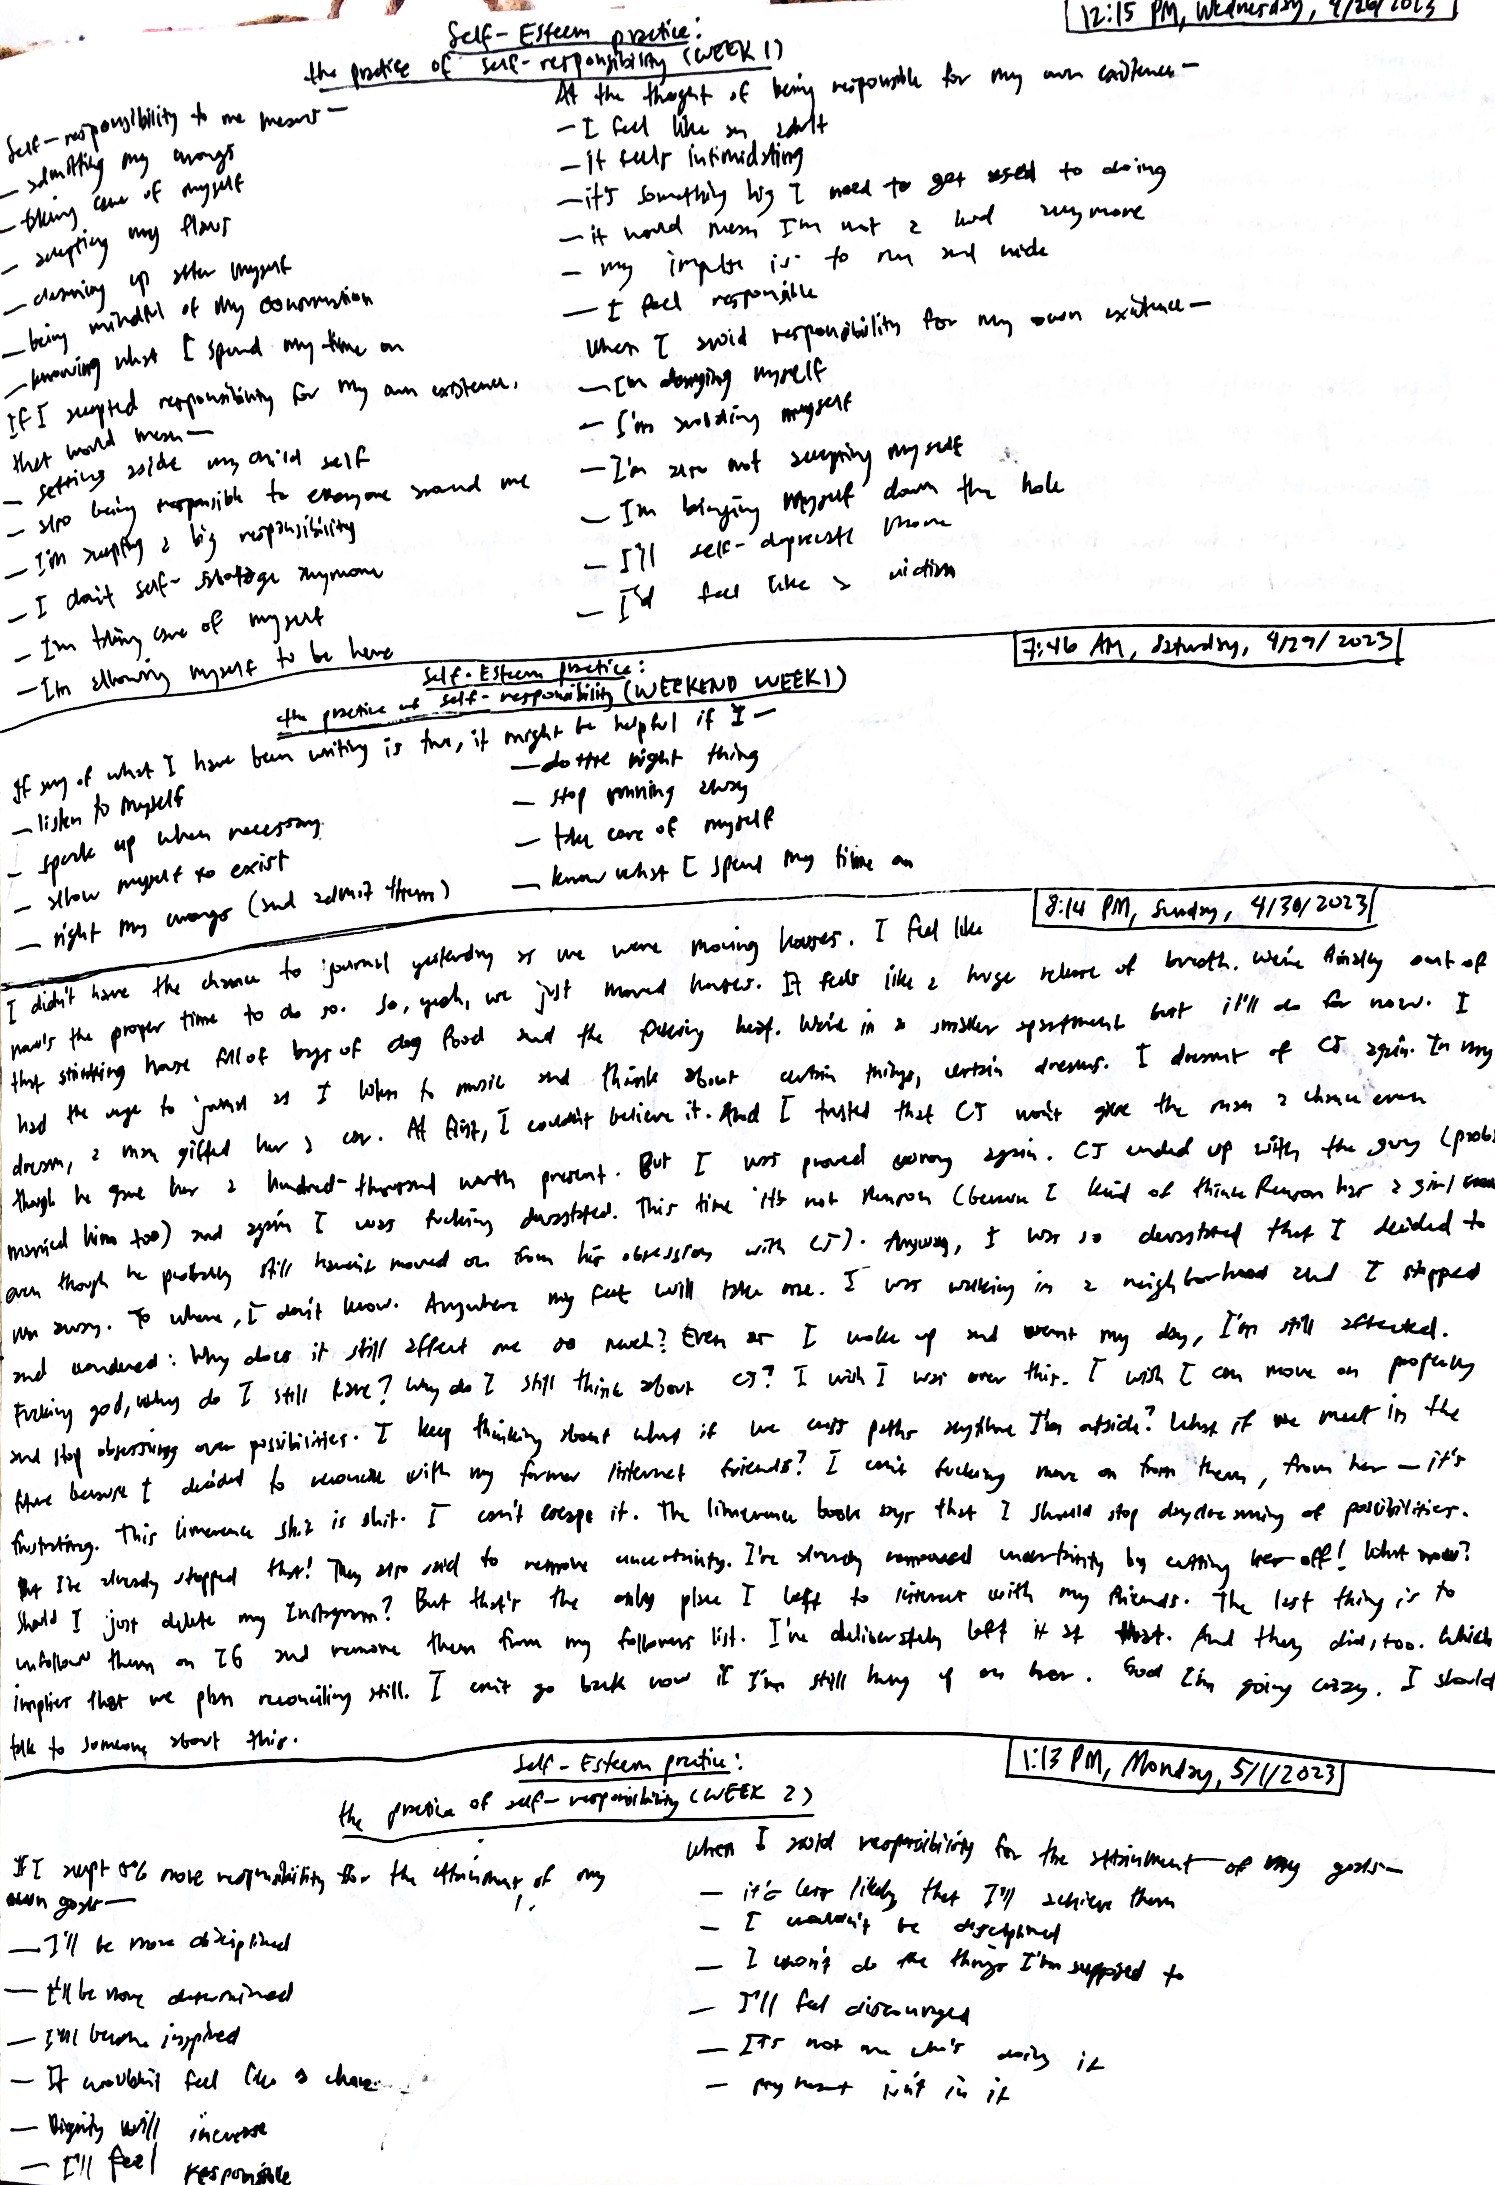 12:15 PM, Wednesday, 4/26/2023
Self-Esteem practice:
the practice of self-responsibility (WEEK 1)
Self-responsibility to me means—
- admitting my wrongs
- taking care of myself
- accepting my flaws
- cleaning up after myself
- being mindful of my
- knowing what I spend my time on
If I accepted responsibility for my own existence,
that would mean—
- setting aside my child self
- also being responsible to everyone around me
- I'm accepting a big responsibility
- I don't self-sabotage anymore
- I'm taking care of myself
- I'm allowing myself to be here
At the thought of being responsible for my own existence—
- I feel like an adult
- it feels intimidating
- it's something big I need to get used to doing
- it would mean I'm not a kid anymore
- my impulse is to run and hide
- I feel responsible
When I avoid responsibility for my own existence—
- I'm denying myself
- I'm avoiding myself
- I'm also not accepting myself
- I'm bringing myself down the hole
- I'll self-deprecate more
- I'd feel like a victim
7:46 AM, Saturday, 4/29/2023
Self-Esteem practice:
the practice of self-responsibility (WEEKEND WEEK 1)
If any of what I have been writing is true, it might be helpful if I—
- listen to myself
- speak up when necessary
- allow myself to exist
- right my wrongs (and admit them)
- do the right thing
- stop running away
- take care of myself
- know what I spend my time on
8:14 PM, Sunday, 4/30/2023
I didn't have the chance to journal yesterday as we were moving houses. I feel like
now's the proper time to do so. So, yeah, we just moved houses. It feels like a huge release of breath. We're finally out of
that stinking house full of bags of dog food and the fucking heat. We're in a smaller apartment but it'll do for now. I
had the urge to journal as I listen to music and think about certain things, certain dreams. I dreamt of CJ again. In my
dream, a man gifted her a car. At first, I couldn't believe it. And I trusted that CJ won't give the man a chance even
though he gave her a hundred-thousand worth present. But I was proved wrong again. CJ ended up with the guy (prob
married him too) and again I was fucking devastated. This time it's not (because I kind of think has a girl
even though he probably still haven't moved on from his obsession with CJ). Anyway, I was so devastated that I decided to
run away. To where, I don't know. Anywhere my feet will take me. I was walking in a neighborhood and I stopped
and wondered: Why does it still affect me so much? Even as I woke up and went my day, I'm still affected.
Fucking god, why do I still care? Why do I still think about CJ? I wish I was over this. I wish I can move on properly
and stop obsessing over possibilities. I keep thinking about what if we cross paths anytime I'm outside? What if we meet in the
future because I decided to reconcile with my former internet friends? I can't fucking move on from them, from her — it's
frustrating. This limerence shit is shit. I can't escape it. The limerence book says that I should stop daydreaming of possibilities.
But I've already stopped that! They also said to remove uncertainty. I've already removed uncertainty by cutting her off! What now?
Should I just delete my Instagram? But that's the only place I left to interact with my friends. The last thing is to
unfollow them on IG and remove them from my followers list. I've deliberately left it at that. And they did, too. Which
implies that we plan reconciling still. I can't go back now if I'm still hung up on her. God I'm going crazy. I should
talk to someone about this.
1:13 PM, Monday, 5/1/2023
Self-Esteem practice:
the practice of self-responsibility (WEEK 2)
If I accept 5% more responsibility for the attainment of my
own goals—
- I'll be more disciplined
- I'll be more determined
- I'll become inspired
- It wouldn't feel like a chore
- Dignity will increase
- I'll feel responsible
When I avoid responsibility for the attainment of my goals—
- it's less likely that I'll achieve them
- I wouldn't be disciplined
- I won't do the things I'm supposed to
- I'll feel discouraged
- It's not me who's doing it
- my heart isn't in it